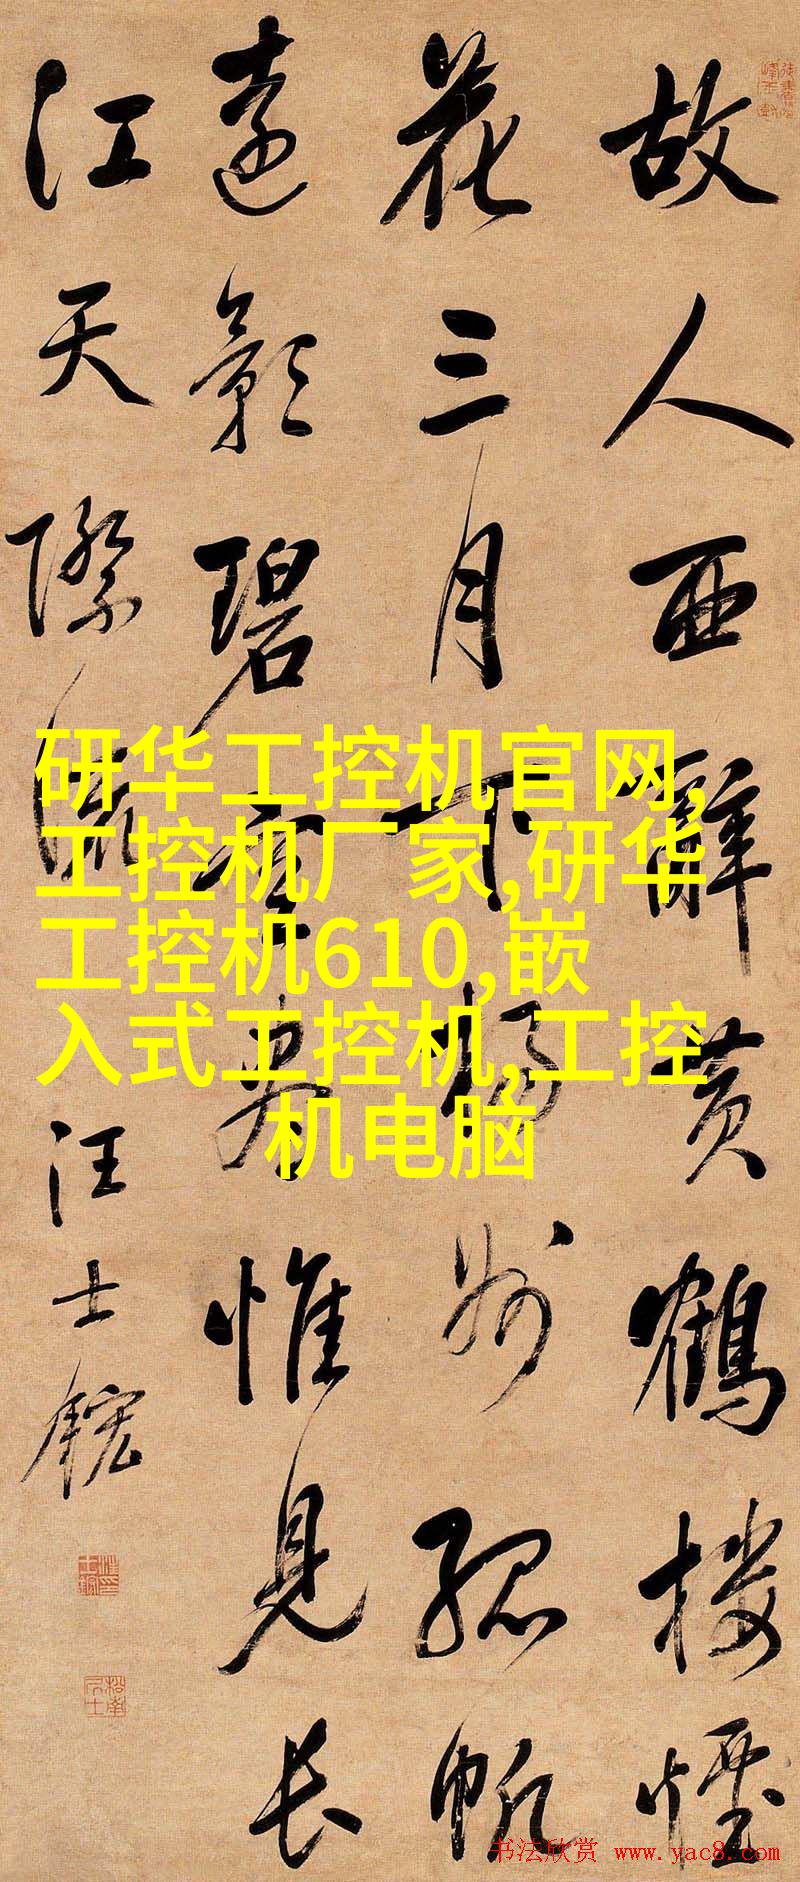 故人西辭黃鶴樓煙
花三月下揚州孤帆
遠影碧空盡惟見長
江天際流
汪士鋐
研华工控机官网,
工控机厂家,研华
工控机610,嵌
入式工控机,工控
机电脑
书法欣赏 www.yac8.com